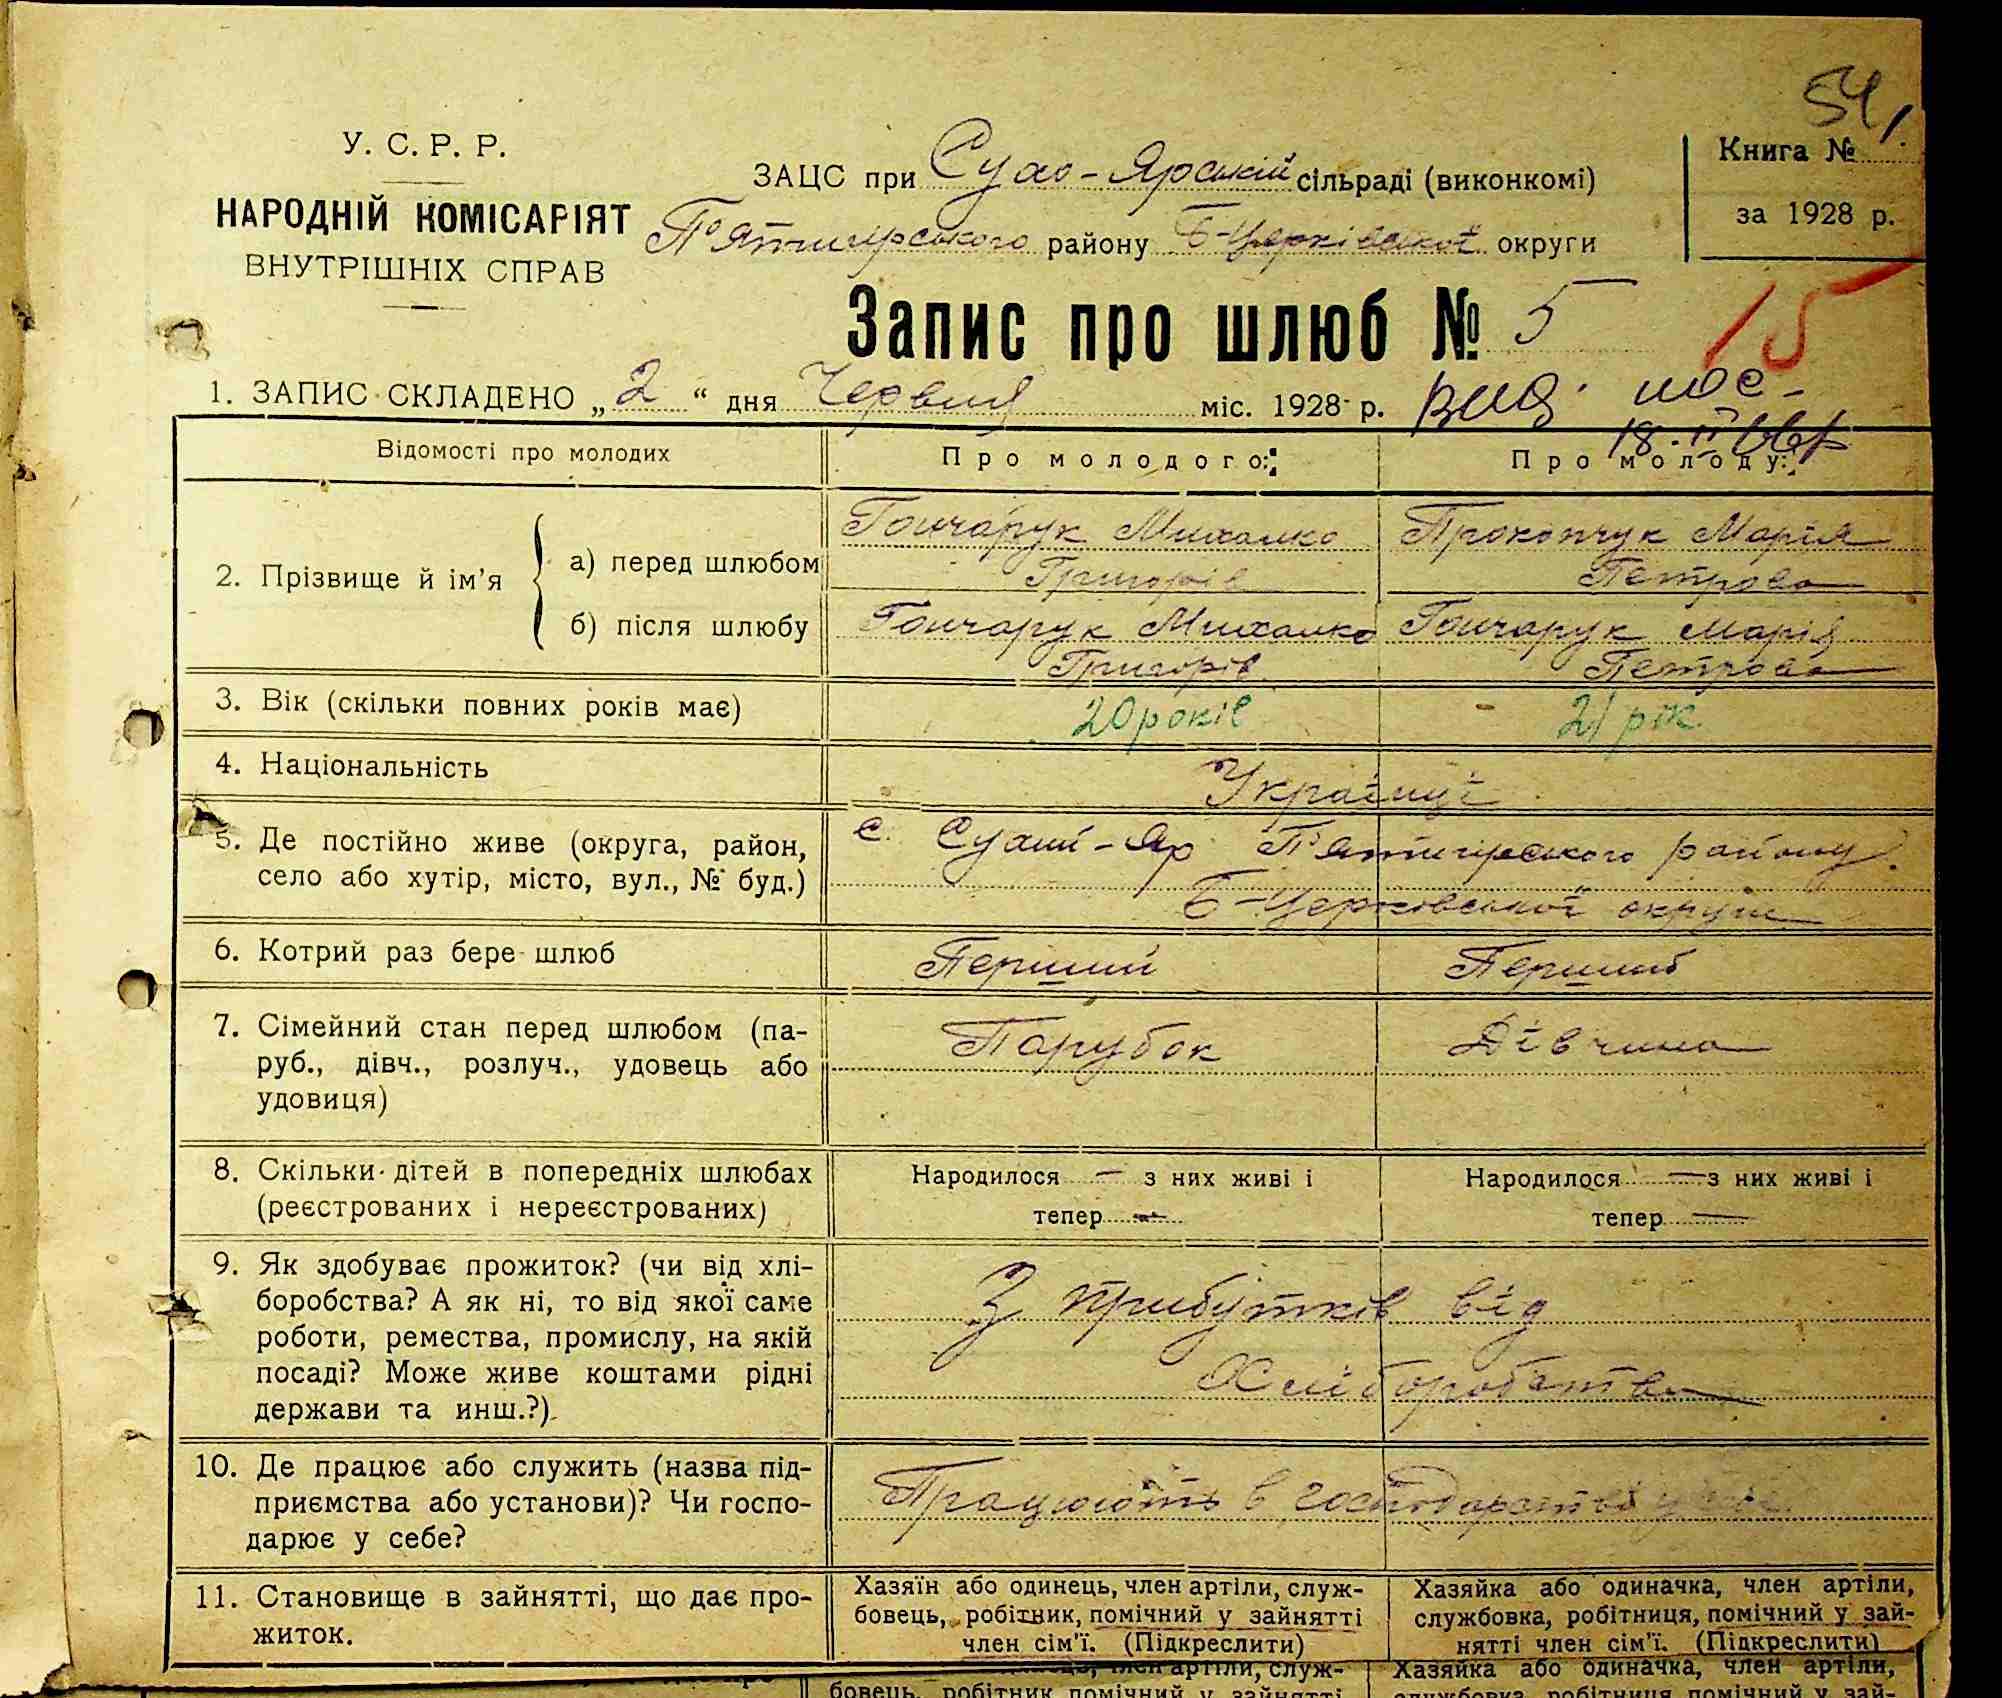 54
У. С. Р. Р.
НАРОДНІЙ КОМІСАРІЯТ
ВНУТРІШНІХ СПРАВ
ЗАЦС при Сухо-Ярській сільраді (виконкомі)
П'ятигірського району Б-Церківської округи
Книга №
за 1928 р.
Запис про шлюб № 5
15
1. ЗАПИС СКЛАДЕНО „2“ дня Червня міс. 1928 р.
вид.
18.II
Відомості про молодих
Про молодого:
Про молоду:
2. Прізвище й ім'я
а) перед шлюбом
Гончарук Михалко
Григорів
Прокопчук Марія
Петрова
б) після шлюбу
Гончарук Михалко
Григорів
Гончарук Марія
Петрова
3. Вік (скільки повних років має)
20 років
21 рік
4. Національність
Українці
5. Де постійно живе (округа, район,
село або хутір, місто, вул., № буд.)
с. Сухий-Яр П'ятигірського району
Б-Церковської округи
6. Котрий раз бере шлюб
Перший
Перший
7. Сімейний стан перед шлюбом (па-
руб., дівч., розлуч., удовець або
удовиця)
Парубок
Дівчина
8. Скільки дітей в попередніх шлюбах
(реєстрованих і нереєстрованих)
Народилося — з них живі і
тепер —
Народилося — з них живі і
тепер —
9. Як здобуває прожиток? (чи від хлі-
боробства? А як ні, то від якої саме
роботи, ремества, промислу, на якій
посаді? Може живе коштами рідні
держави та инш.?)
З прибутків від
Хліборобства
10. Де працює або служить (назва під-
приємства або установи)? Чи госпо-
дарює у себе?
Працюють в господарстві
11. Становище в зайнятті, що дає про-
житок.
Хазяїн або одинець, член артіли, служ-
бовець, робітник, помічний у зайнятті
член сім'ї. (Підкреслити)
Хазяйка або одиначка, член артіли,
службовка, робітниця, помічний у зай-
нятті член сім'ї. (Підкреслити)
член артіли, служ-
бовець, робітник помічний у зайнятті
Хазяйка або одиначка, член артіли,
службовка, робітниця помічний у зай-